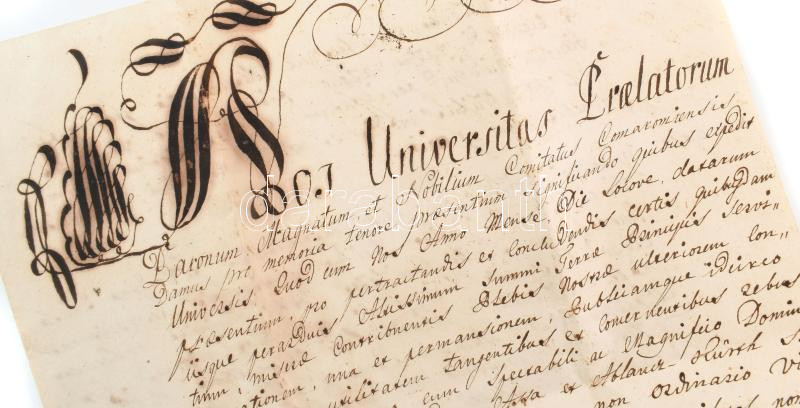 Nos Universitas Prælatorum
Baronum Magnatum, et Nobilium Comitatus Comaromiensis
Damus pro memoria tenore præsentium significando quibus expedit
Universis. Quod cum Nos Anno Mense, Die Locove, datarum
præsentium, pro pertractandis et concludendis certis, quibusdam
iisque perarduis Altissimum Summi Terræ Principis Servi-
tium, miseræ Contribuentis Plebis Nostræ ulteriorem Con-
ationem, una et permansionem, Publicamque idcirco
utilitatem tangentibus et concernentibus rebus
cum spectabili ac Magnifico Domin
Assa et Ablancz-Kürth
non ordinario
darabanth